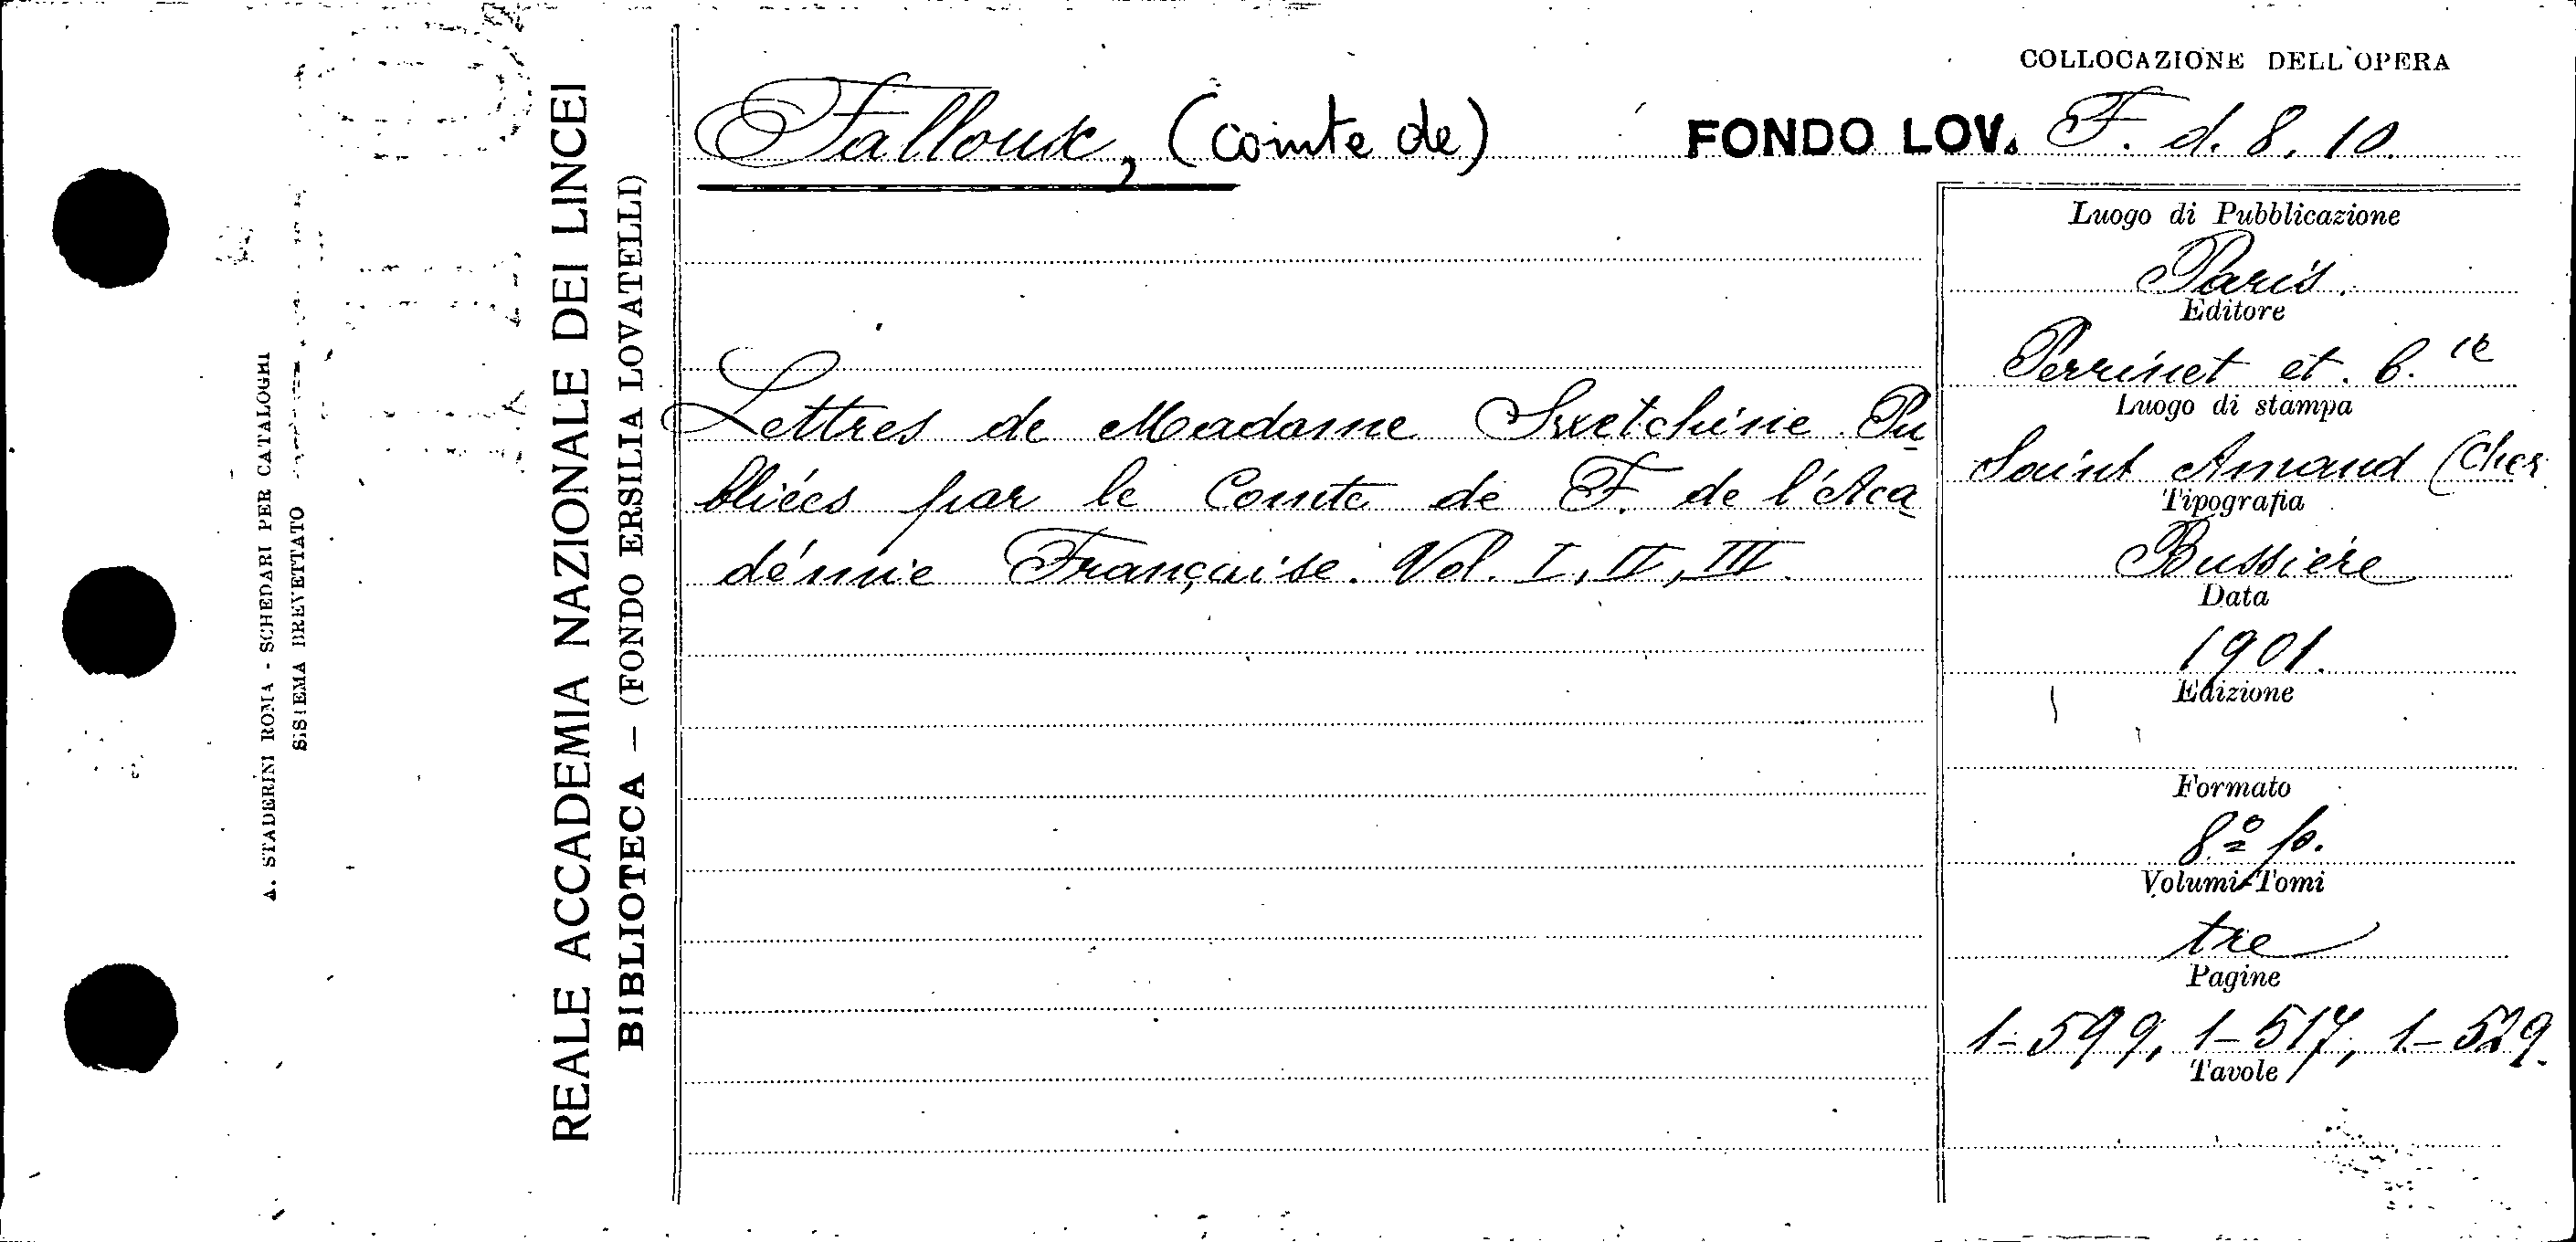 COLLOCAZIONE DELL'OPERA
Falloux, (comte de)
FONDO LOV. F. d. 8. 10.
Lettres de Madame Swetchine Pu
bliées par le Comte de F. de l'Aca
démie Française. Vol. I, II, III.
Luogo di Pubblicazione
Paris.
Editore
Perrinet et C.ie
Luogo di stampa
Saint Amand (Cher
Tipografia
Bussière
Data
1901.
Edizione
Formato
8º p.
Volumi-Tomi
tre
Pagine
1-599, 1-517, 1-529.
Tavole
REALE ACCADEMIA NAZIONALE DEI LINCEI
BIBLIOTECA — (FONDO ERSILIA LOVATELLI)
A. STADERINI ROMA - SCHEDARI PER CATALOGHI
SISTEMA BREVETTATO